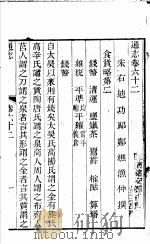 通志卷六十二
宋右迪功郎鄭樵漁仲撰
食貨略第二
錢幣 漕運 鹽鐵茶 鬻爵 榷酤 算緡
雜稅 平準均輸 平糴
錢幣
自太昊以來則有錢矣太昊氏高陽氏謂之金有熊氏
高辛氏謂之貨陶唐氏謂之泉商人周人謂之布齊人
莒人謂之刀謂之泉者言其形謂之金者言其質謂之
通志